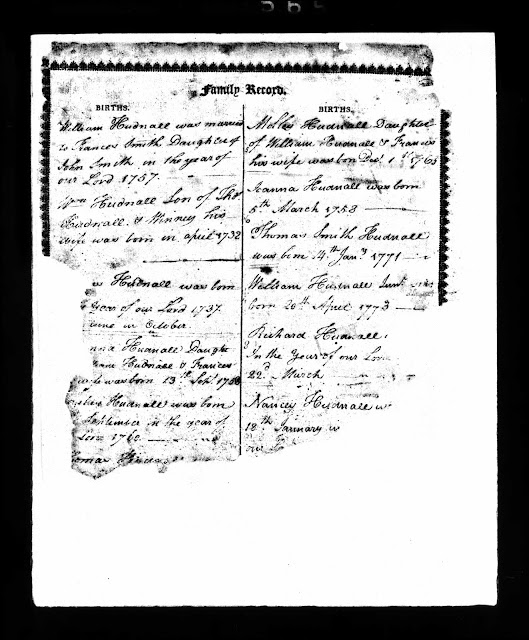 Family Record.
BIRTHS.
William Hudnall was married
to Frances Smith Daughter of
John Smith in the year of
our Lord 1757.
Wm Hudnall Son of Thos
Hudnall & Winney his
wife was born in april 1732
Hudnall was born
year of our Lord 1737.
in October
Hudnall Daught
Hudnall & Frances
wife was born 13th Sept 1758
Hudnall was born
September in the year of
1760
BIRTHS.
Molly Hudnall Daughter
of William Hudnall & Frances
his wife was born Decr 1st 1765
Joanna Hudnall was born
5th March 1758
Thomas Smith Hudnall
was born 4th Jany 1771
William Hudnall Junr was
born 20th April 1773
Richard Hudnall
In the Year of our Lord
22d March
Nancy Hudnall w
18th January
our